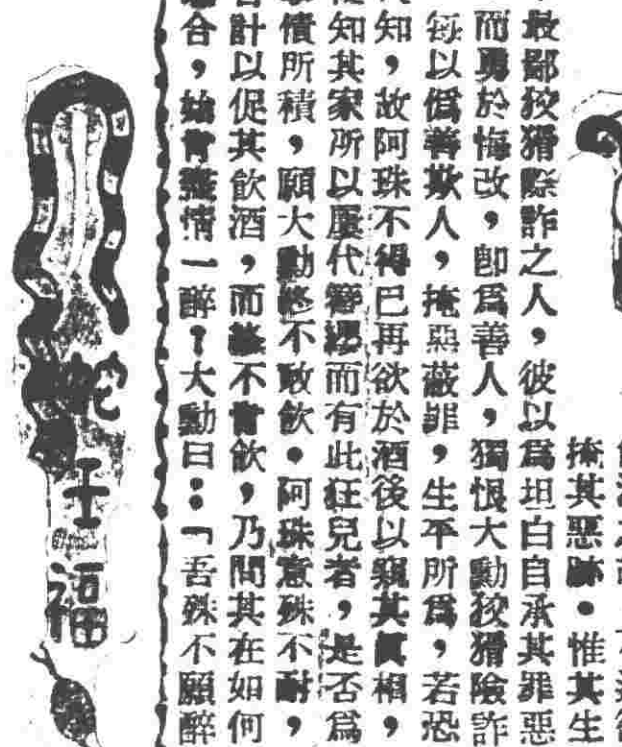 掩其惡跡。惟其生
最鄙狡猾險詐之人，彼以爲坦白自承其罪惡
而勇於悔改，卽爲善人，獨恨大勳狡猾險詐
每以僞善欺人，掩惡蔽罪，生平所爲，若恐
知，故阿珠不得已再欲於酒後以窺其眞相，
知其家所以屢代簪纓而有此狂兒者，是否爲
債所積，願大勳終不敢飲。阿珠意殊不耐，
計以促其飲酒，而終不肯飲，乃問其在如何
合，始肯盡情一醉？大勳曰：「吾殊不願醉
蛇王福